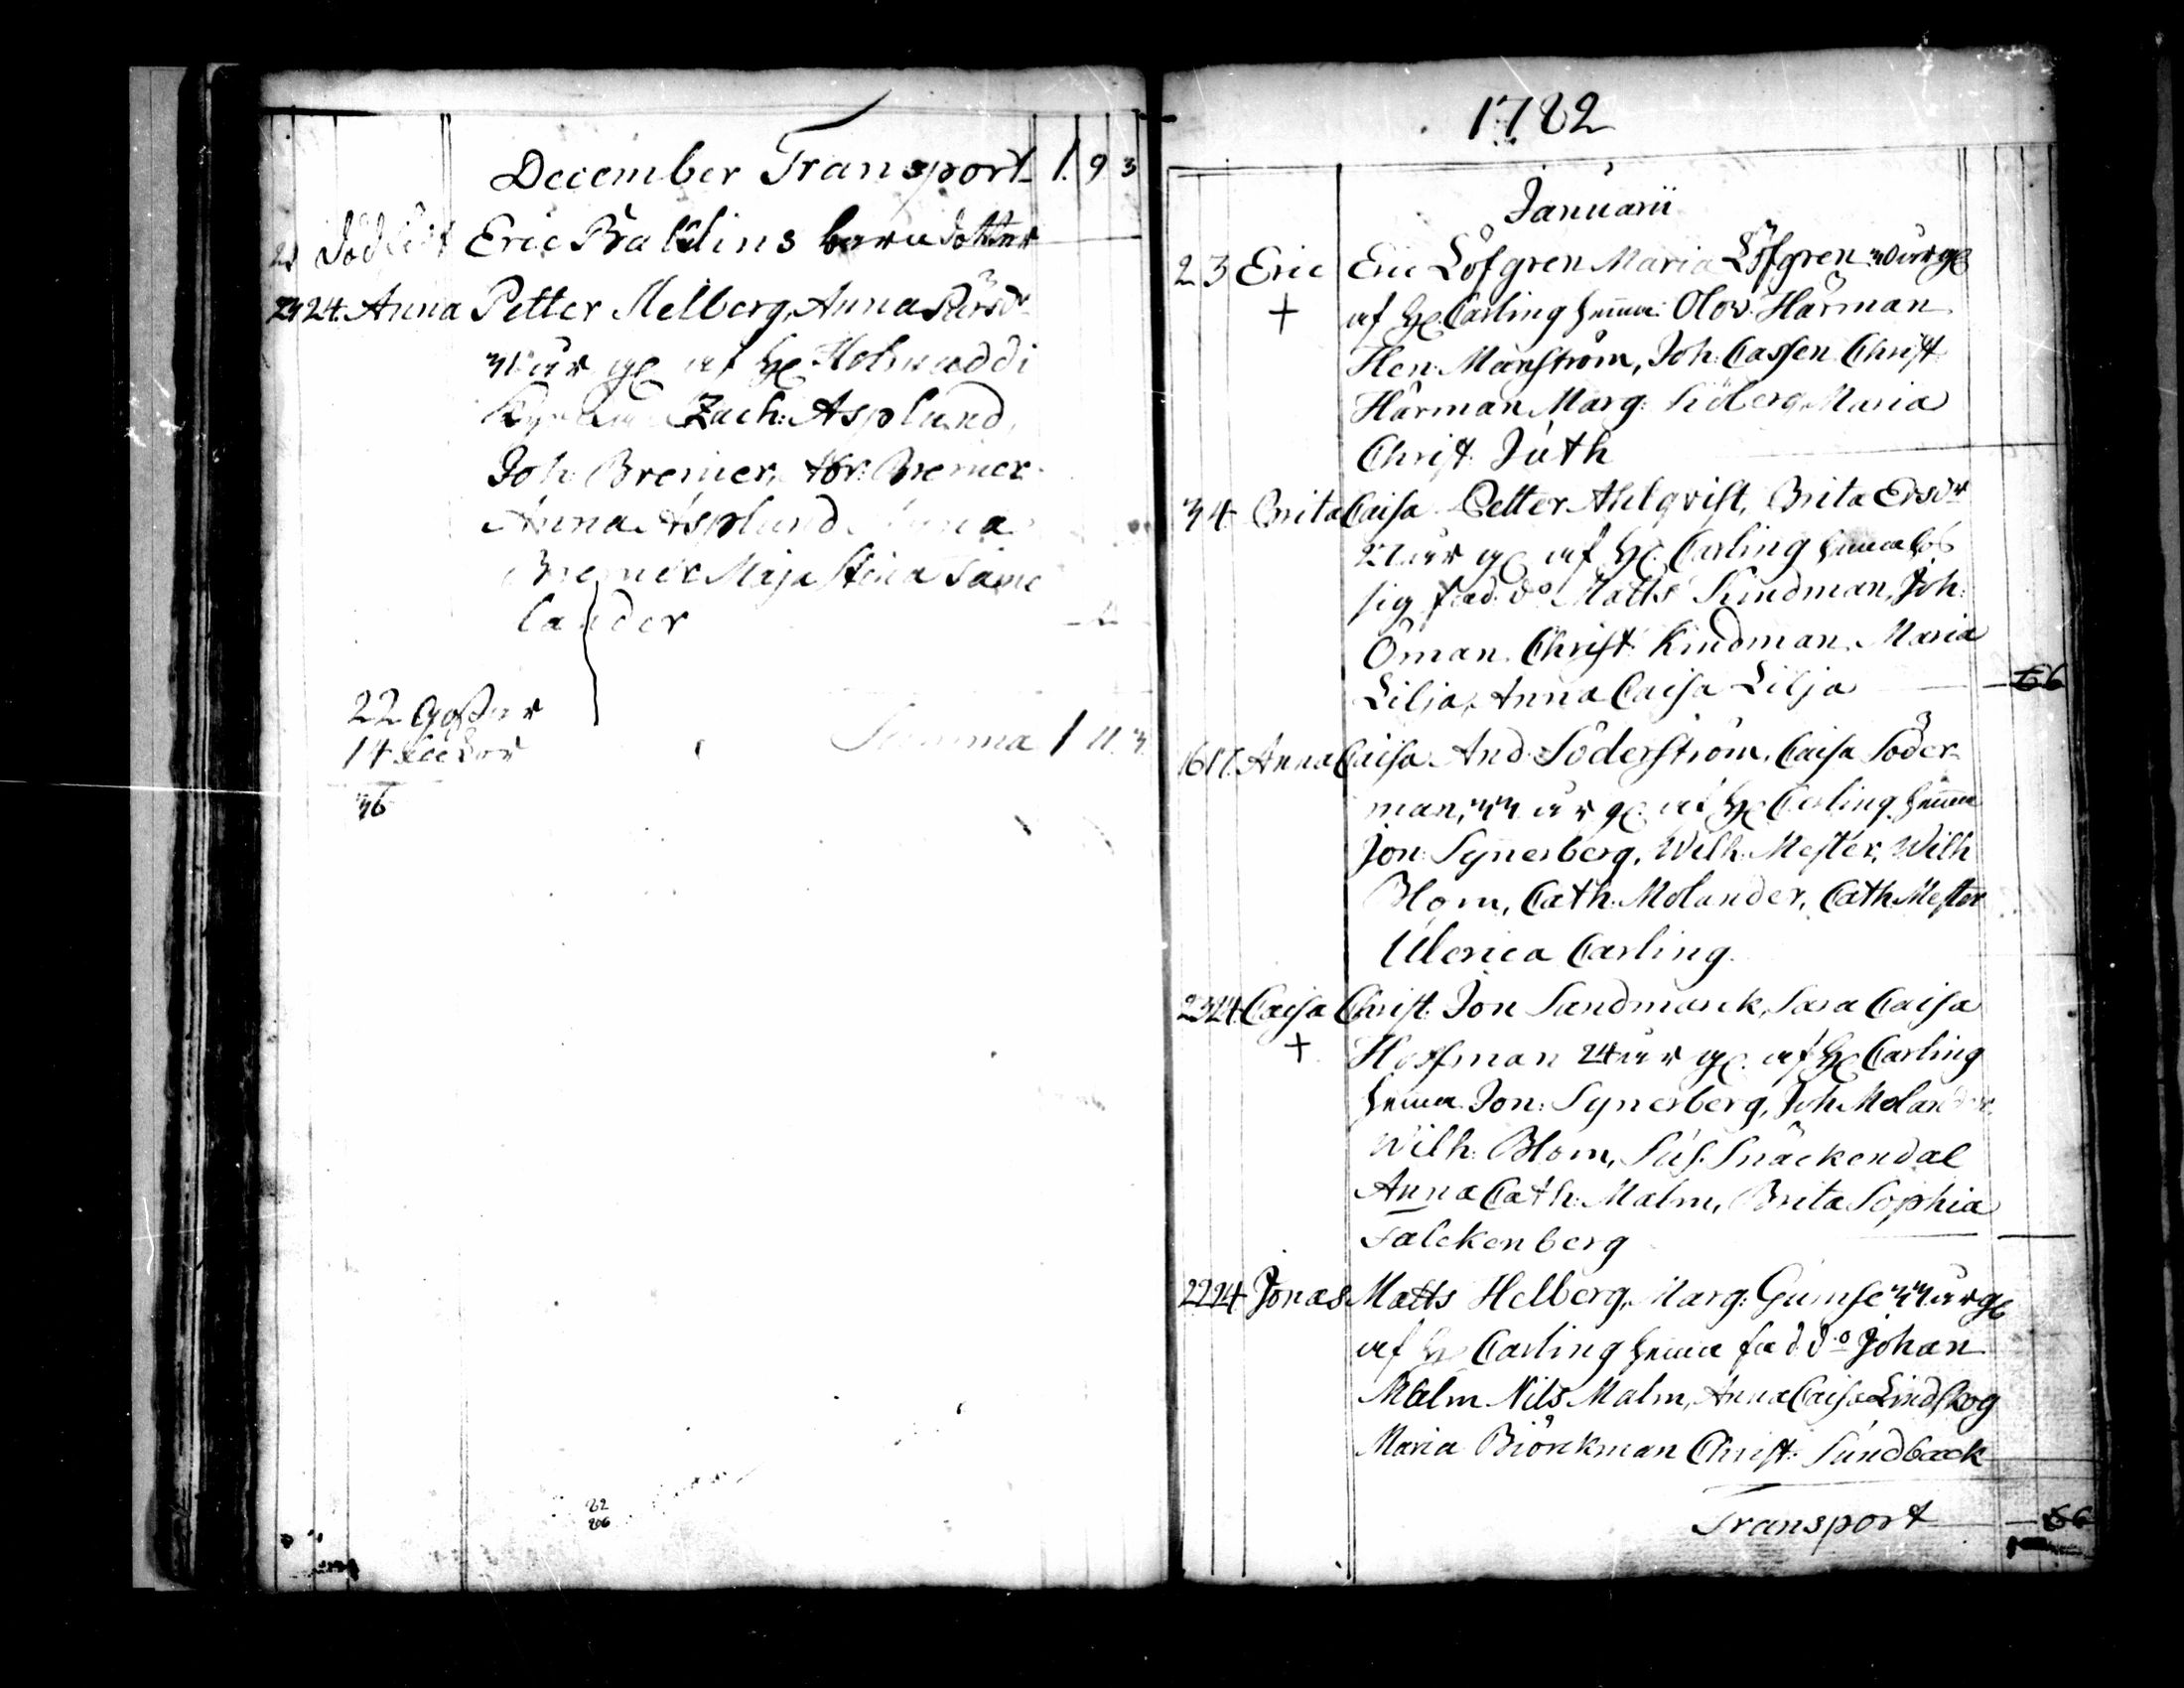 December Transport 1. 9 3
Eric Bahlins barn dotter
24. Anna Petter Melberg, Anna Pärsdr
år gl af Hr Holmuddi
Zach: Asplund,
Joh Bremer, Abr: Bremer
Anna Asplund
Bremer Maja Stina Tame
lander
22 Gossar
14 flickor
36
Summa 1 11. 3.
1782
Januarii
2 3 Eric Eric Löfgren Maria Löfgren år gl
+ af Hr Carling hemma: Olov: Harman
Hen: Marström, Joh: Cassen Christ:
Harman Marg: Siöberg, Maria
Christ: Juth
3 4 Brita Caisa Petter Ahlqvist, Brita Ersdr
år gl af Hr Carling hemma hos
sig fad: do Matts Kindman, Joh:
Öman. Christ: Kindman. Maria
Lilja, Anna Caisa Lilja
16 17. Anna Caisa And: Söderström, Caisa Söder
man, 33 år gl. af Hr Carling hemma
Jon: Synerberg, Wilh: Mester, Wilh
Blom, Cath: Molander, Cath: Mester
Ulerica Carling
23 24. Caisa Christ: Jon Sandmarck, Sara Caisa
+ Hoffman 24 år gl. af Hr Carling
hemma Jon: Synerberg, Joh: Molander
Wilh: Blom, Sus: Snäckendal
Anna Cath: Malm, Brita Sophia
Falckenberg
22 24 Jonas Matts Helberg, Marg: Gumse 33 år gl
af Hr Carling hemma fad: do Johan
Malm Nils Malm, Anna Caisa Lindskog
Maria Biörckman Christ: Sundback
Transport